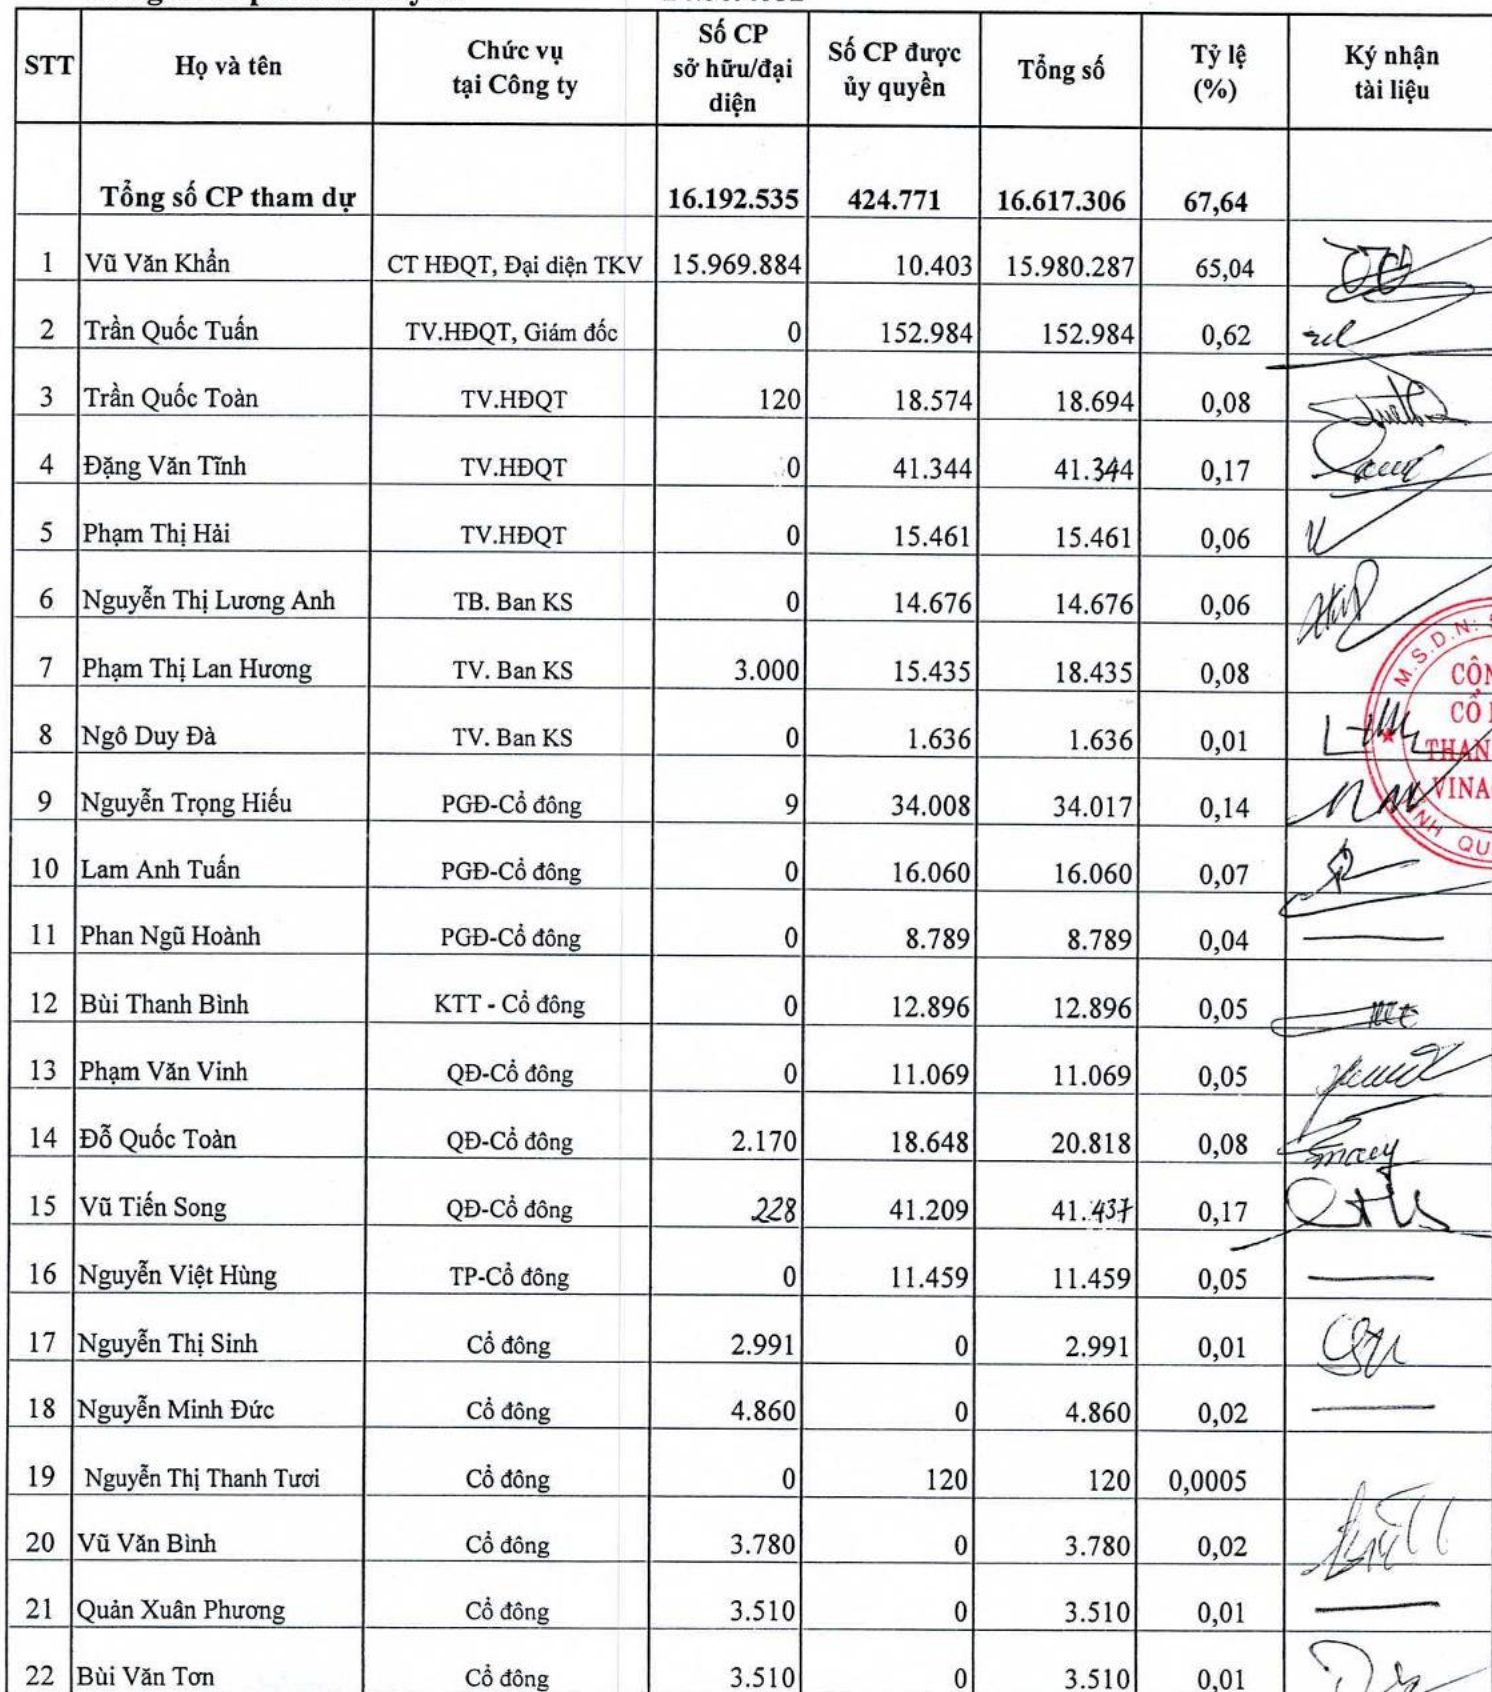 STT Họ và tên Chức vụ tại Công ty Số CP sở hữu/đại diện Số CP được ủy quyền Tổng số Tỷ lệ (%) Ký nhận tài liệu
Tổng số CP tham dự 16.192.535 424.771 16.617.306 67,64
1 Vũ Văn Khẩn CT HĐQT, Đại diện TKV 15.969.884 10.403 15.980.287 65,04
2 Trần Quốc Tuấn TV.HĐQT, Giám đốc 0 152.984 152.984 0,62
3 Trần Quốc Toàn TV.HĐQT 120 18.574 18.694 0,08
4 Đặng Văn Tĩnh TV.HĐQT 0 41.344 41.344 0,17
5 Phạm Thị Hải TV.HĐQT 0 15.461 15.461 0,06
6 Nguyễn Thị Lương Anh TB. Ban KS 0 14.676 14.676 0,06
7 Phạm Thị Lan Hương TV. Ban KS 3.000 15.435 18.435 0,08
8 Ngô Duy Đà TV. Ban KS 0 1.636 1.636 0,01
9 Nguyễn Trọng Hiếu PGĐ-Cổ đông 9 34.008 34.017 0,14
10 Lam Anh Tuấn PGĐ-Cổ đông 0 16.060 16.060 0,07
11 Phan Ngũ Hoành PGĐ-Cổ đông 0 8.789 8.789 0,04
12 Bùi Thanh Bình KTT - Cổ đông 0 12.896 12.896 0,05
13 Phạm Văn Vinh QĐ-Cổ đông 0 11.069 11.069 0,05
14 Đỗ Quốc Toàn QĐ-Cổ đông 2.170 18.648 20.818 0,08
15 Vũ Tiến Song QĐ-Cổ đông 228 41.209 41.437 0,17
16 Nguyễn Việt Hùng TP-Cổ đông 0 11.459 11.459 0,05
17 Nguyễn Thị Sinh Cổ đông 2.991 0 2.991 0,01
18 Nguyễn Minh Đức Cổ đông 4.860 0 4.860 0,02
19 Nguyễn Thị Thanh Tươi Cổ đông 0 120 120 0,0005
20 Vũ Văn Bình Cổ đông 3.780 0 3.780 0,02
21 Quản Xuân Phương Cổ đông 3.510 0 3.510 0,01
22 Bùi Văn Tơn Cổ đông 3.510 0 3.510 0,01
M.S.D.N:
THAN
VINA